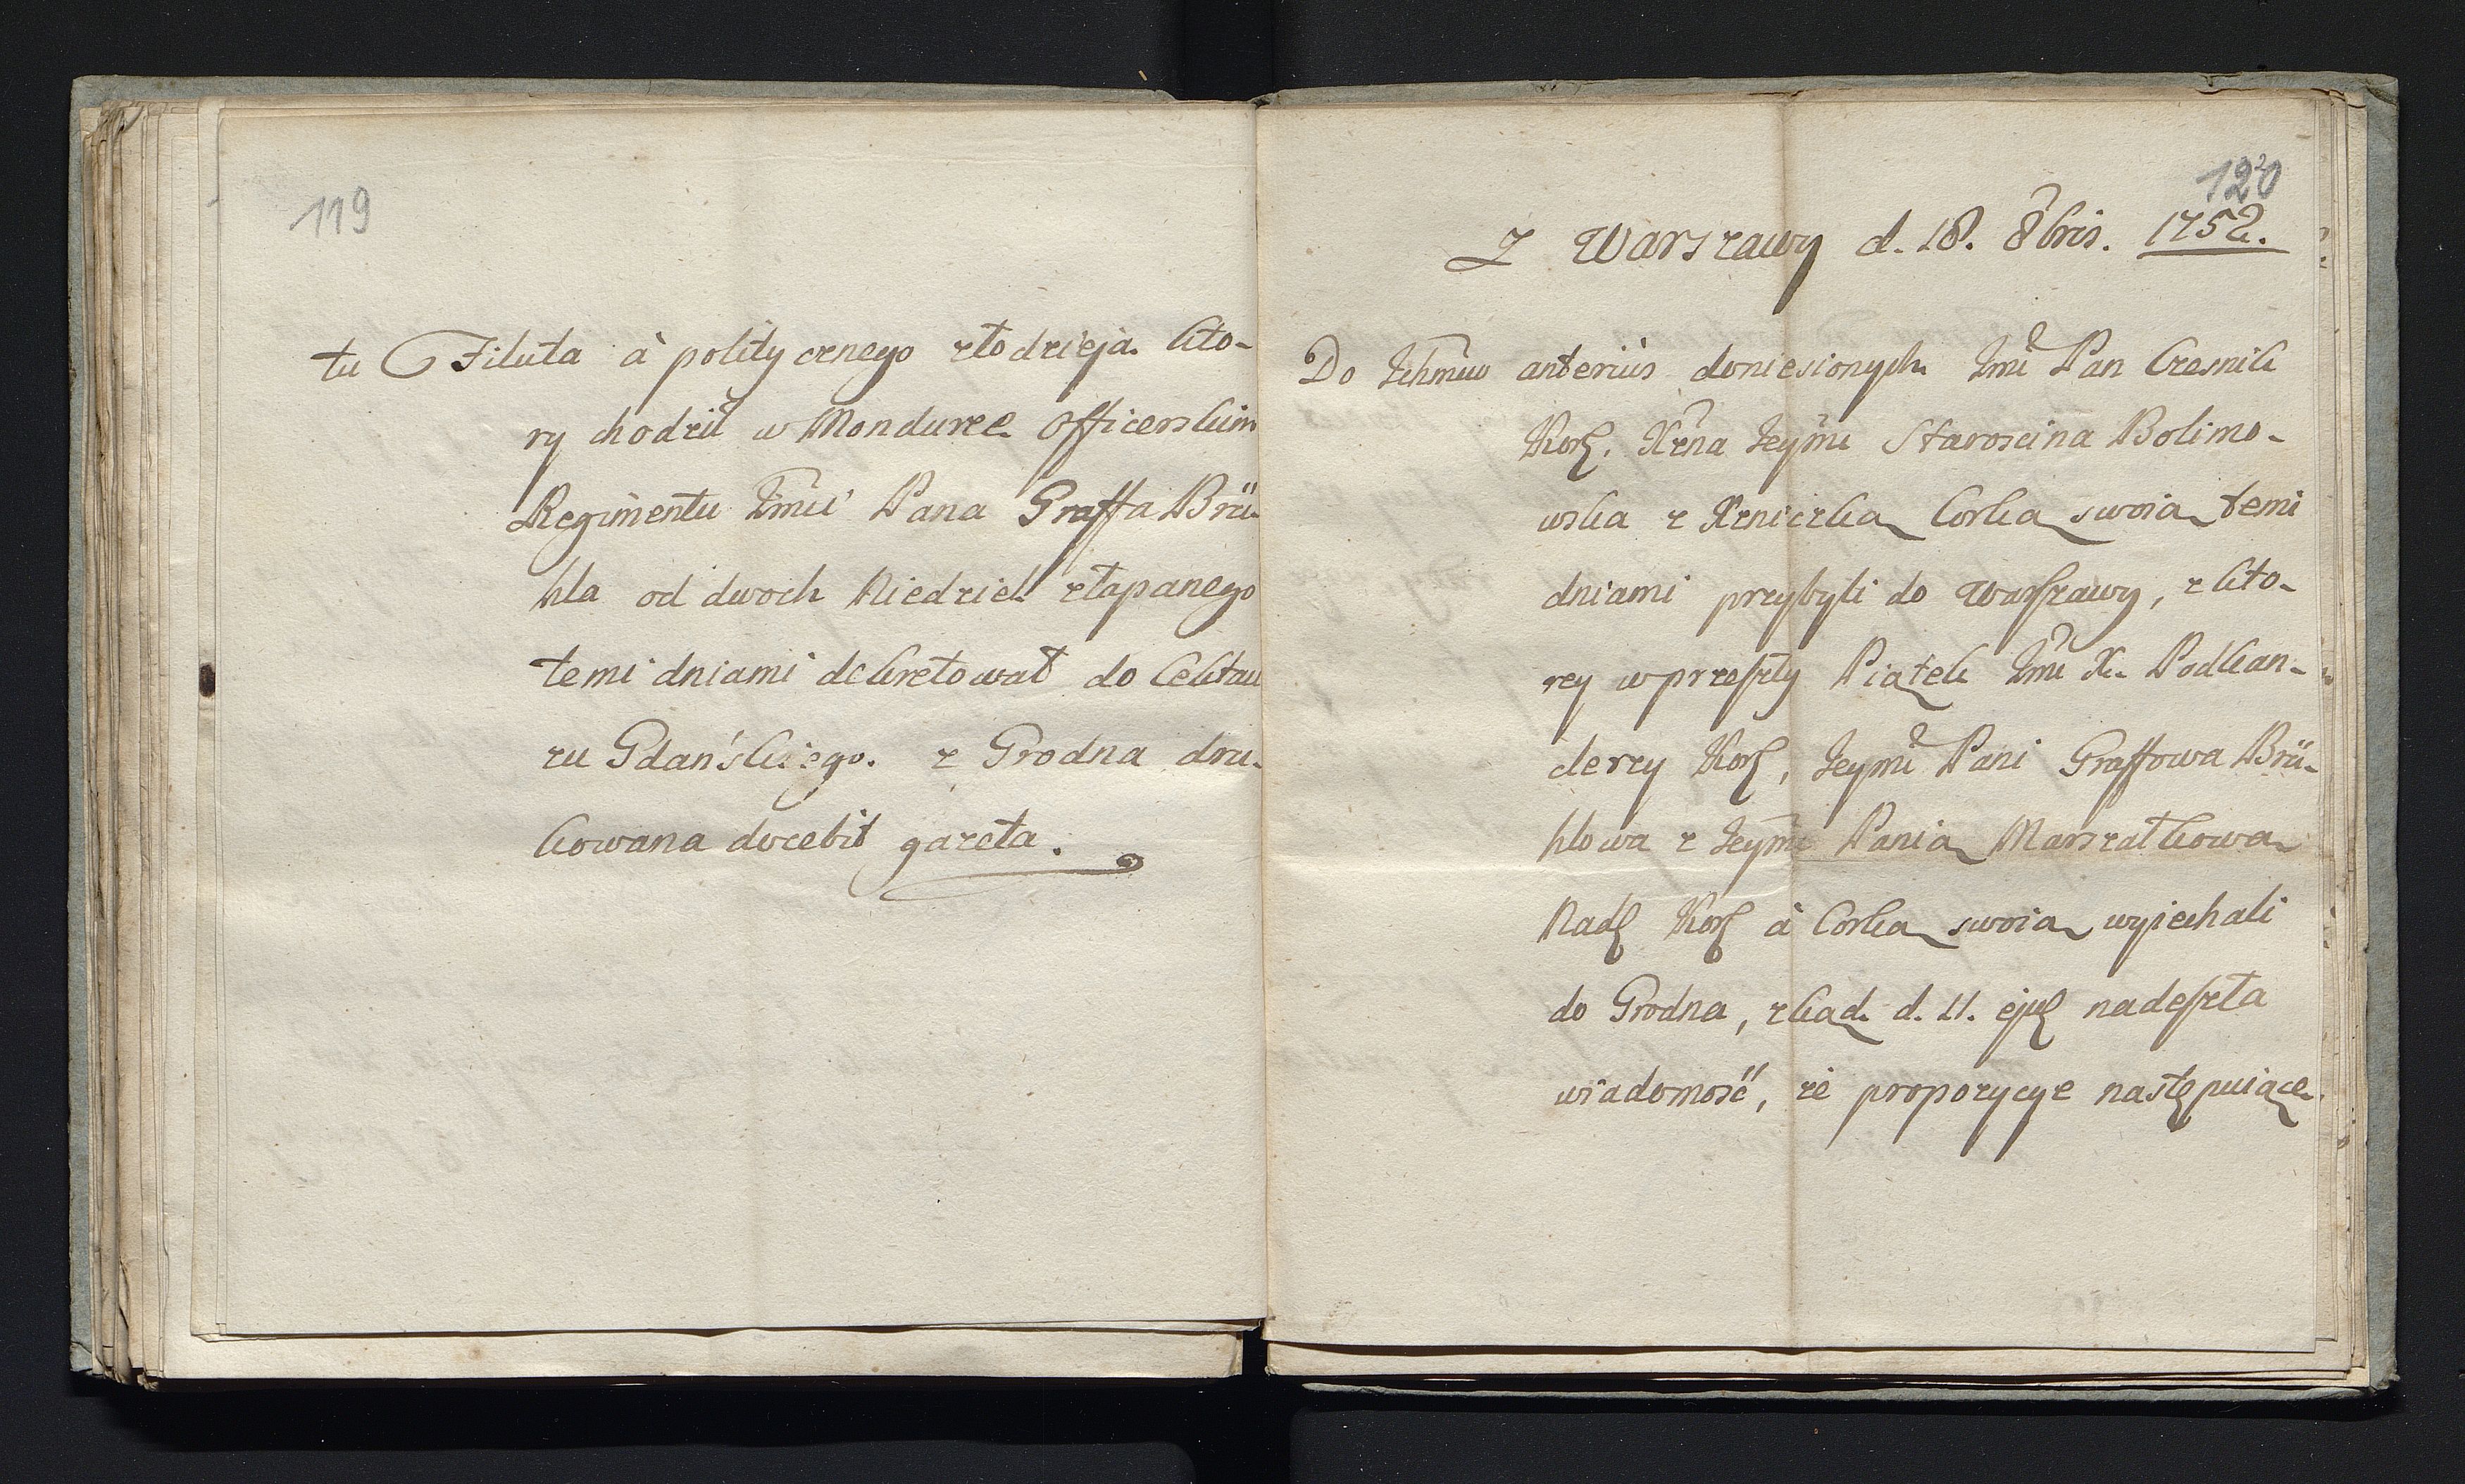 119
tu Filuta à politycznego złodzieja kto-
ry chodził w Mondurze officerskim
Regimentu Jmci Pana Graffa Brü-
hla od dwoch Niedziel złapanego
temi dniami dekretował do Cekau
zu Gdańskiego. z Grodna dru-
kowana docebit gazeta.
120
Z Warszawy d. 18. 8bris. 1752.
Do Ichmciow anterius doniesionych Jmć Pan Czesnik
Kor. Xżna Jeymć Staroscina Bolimo-
wska z Xzniczką Corką swoią temi
dniami przybyli do Warszawy, z kto-
rey w przeszły Piątek Jmć X. Podkan-
clerzy Kor, Jeymć Pani Graffowa Brü-
hlowa z Jeymć Panią Marszałkową
Nad Kor à Corką swoią wyiechali
do Grodna, zkąd d. 11. ejus nadeszła
wiadomość, że propozycye następuiące